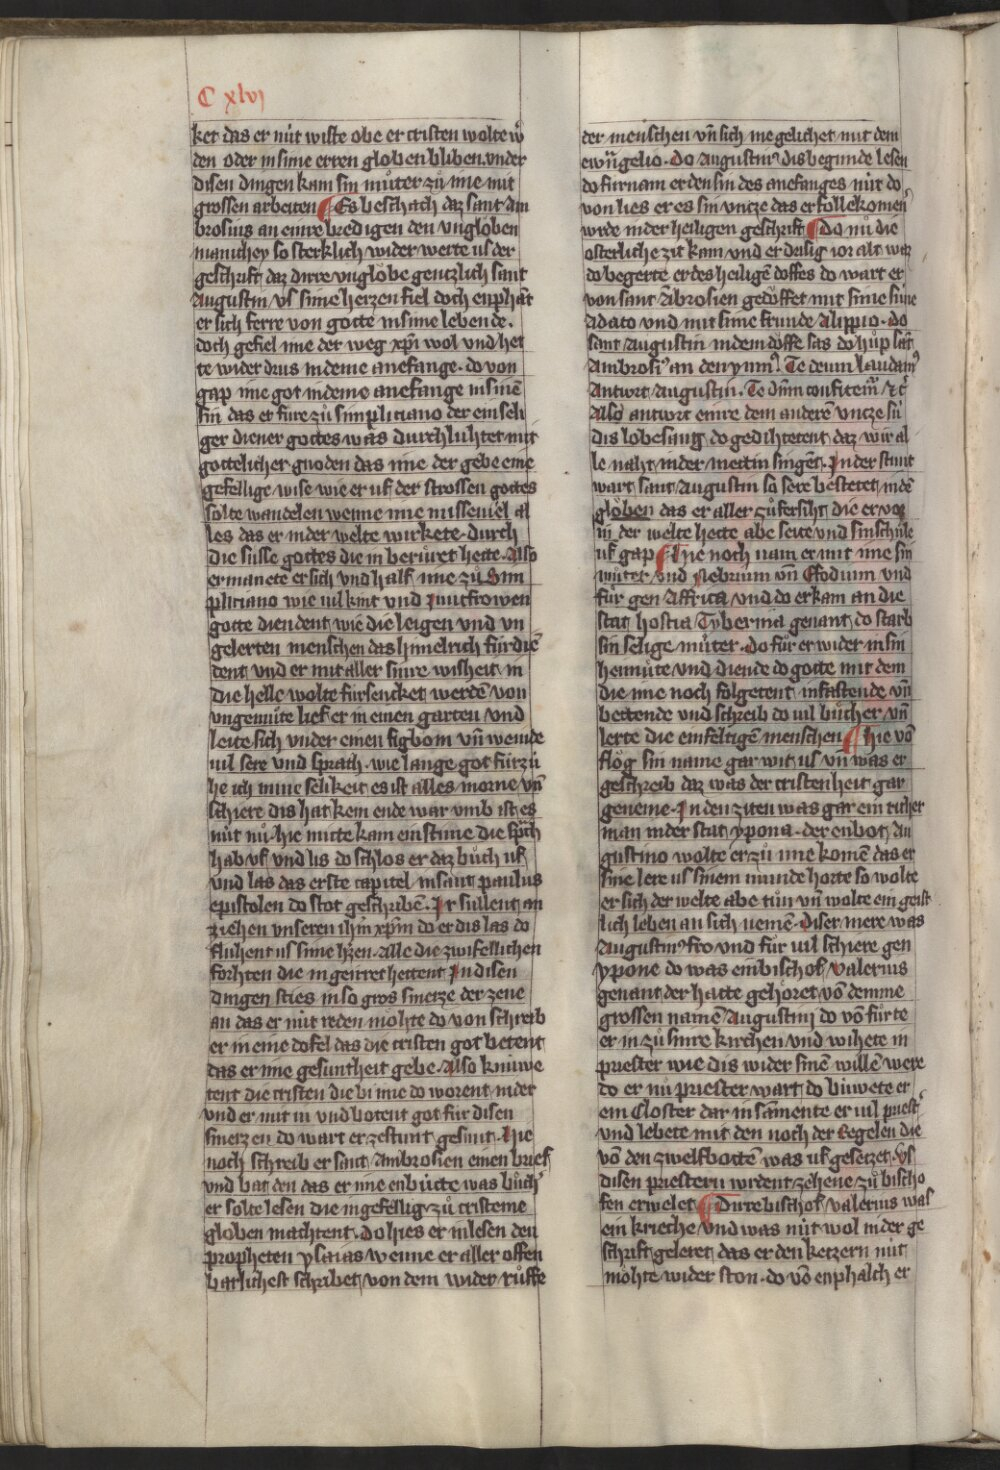 C xlvi
ket das er nút wiste obe er cristen wolte wͦ
den oder in sime erren globen bliben. vnder
disen dingen kam sin můter zů ime mit
grossen arbeiten ¶ Es beschach daz sant am
brosius an eimre bredigen den vngloben
manichey so sterklich wider werte us der
geschrift daz dirre vnglobe gentzlich sant
Augustin vs sime herzen fiel doch enphāt
er sich ferre von gotte in sime lebende.
doch gefiel ime der weg xp̄i wol vnd het
te wider drus in deme anefange. do von
gap ime got in deme anefange in sinē
sin das er fúre zů simpliciano der ein seli
ger diener gottes was durchluhtet mit
gottelicher gnoden das ime der gebe eine
gefellige wise wie er uf der strossen gottes
solte wandelen wenne ime misseviel al
les das er in der welte wirkete. durch
die sússe gottes die in berůret hette. Also
ermanete er sich vnd half ime zů Sim
pliciano wie vil kint vnd Juncfrowen
gotte diendent wie die leigen vnd vn
gelerten menschen das himelrich fúr diē
dent vnd er mit aller sinre wisheit in
die helle wolte fúrsencket werdē von
vngemůte lief er in einen garten vnd
leite sich vnder einen figbom vn̄ weinde
vil sere vnd sprach. wie lange got fúrzú
he ich mine selikeit es ist alles morne vn̄
schiere dis hat kein ende war vmb ist es
nút nů. hie mitte kam ein stime die sp̄ch
hab vf vnd lis do schlos er daz bůch uf
vnd las das erste capitel in sant paulus
epistolen do stot geschribē. Ir súllent an
ziehen vnseren ihm̄ xp̄m do er dis las do
fluhent us sime hzen. Alle die zwifellichen
forhten die in geirret hettent In disen
dingen sties in so gros smerze der zene
an das er nút reden mohte do von schreib
er in eine dofel das die cristen got betent
das er ime gesuntheit gebe. Also knúwe
tent die cristen die bi ime do worent nider
vnd er mit in vnd botent got fúr disen
smerzen do wart er zestunt gesunt. hie
noch schreib er sant Ambrosien einen brief
vnd bat den das er ime enbútte was bůchͬ
er solte lesen die in gefellig zů cristeme
globen machtent. do hies er in lesen den
propheten ysaias wenne er aller offen
barlichest schribet von dem wider růffe
der menschen vn̄ sich ime gelichet mit dem
ewūgelio. do Augustinꝰ dis begunde lesen
do fúrnam er den sin des anefanges nút do
von lies er es sin vntze das er follekomenͬ
wrde in der heiligen geschrift ¶ Do nů die
osterliche zit kam vnd er drisig ior alt waz
do begerte er des heiligē doffes do wart er
von sant Ambrosien gedoͤffet mit sime súne
Adato vnd mit sime frúnde Alippio. do
sant Augustin in dem doffe sas do hůp sāt
Ambrosiꝰ an den ymnꝰ. Te deum laudamꝰ
antwrt Augustin. Te dn̄m confitemͬ &c̄
Also antwrt eimre dem anderē vntze sú
dis lobesang do gedihtetent daz wir al
le naht in der mettin singēt. In der stunt
wart sant Augustin so sere bestetet in dē
globen das er aller zůfersiht die er vor
in der welte hette abe seite vnd sin schůle
uf gap ¶ Hie noch nam er mit ime sin
můter vnd Nebrium vn̄ Efodium vnd
fůr gen Affrica vnd do er kam an die
stat hostia Tyberina genant do starb
sin selige můter. do fůr er wider in sin
heimůte vnd diende do gotte mit dem
die ime noch folgetent in fastende vn̄
bettende vnd schreib do vil bůcher vn̄
lerte die einfeltigē menschen ¶ hie vō
flog sin name gar wit us vn̄ was er
geschreib daz was der cristenheit gar
geneme. In den ziten was gar ein richer
man in der stat ypona. der enbot Au
gustino wolte er zů ime komē das er
sine lere us sinem munde horte so wolte
er sich der welte abe tůn vn̄ wolte ein geist
lich leben an sich nemē. Diser mere was
Augustinꝰ fro vnd fůr vil schiere gen
ypone do was ein bischof valerius
genant der hatte gehoret vō demme
grossen namē Augustini do vō fůrte
er in zů sinre kirchen vnd wihete in
priester wie dis wider sinē willē were
do er nů priester wart do búwete er
ein Closter dar in sāmente er vil priestͬ
vnd lebete mit den noch der Regelen die
vō den zwelfbottē was uf gesetzet. vs
disen priestern wrdent zehene zů bischo
fen erwelet ¶ Dirre bischof valerius was
ein krieche vnd was nút wol in der ge
schrift geleret das er den ketzern nút
mohte wider ston. do vō enphalch er